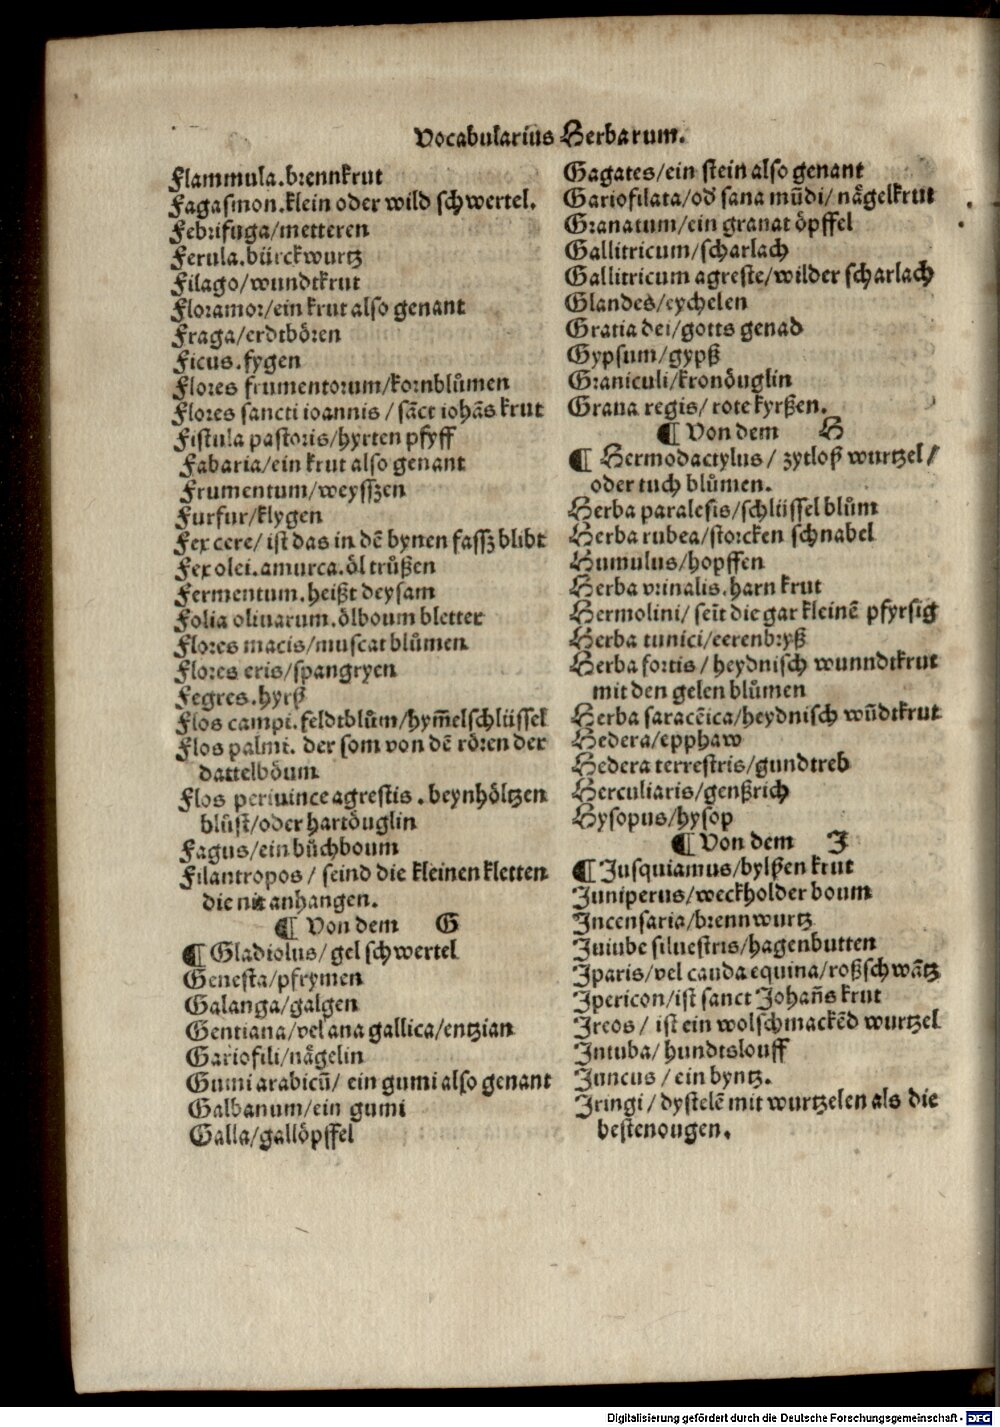 Vocabularius Herbarum.
Flammula.brennkrut
Fagasmon.klein oder wild schwertel.
Febrifuga/metteren
Ferula.bürckwurtz
Filago/wundtkrut
Floramor/ein krut also genant
Fraga/erdtbören
Ficus.fygen
Flores frumentorum/kornblůmen
Flores sancti ioannis / sāct iohās krut
Fistula pastoris/hyrten pfyff
Fabaria/ein krut also genant
Frumentum/weysszen
Furfur/klygen
Fex cere/ ist das in dē bynen fassz blibt
Fex olei.amurca.öl trůßen
Fermentum.heißt deysam
Folia oliuarum.ölboum bletter
Flores macis/muscat blůmen
Flores eris/spangryen
Fegres.hyrß
Flos campi.feldtblům/hym̄elschlüssel
Flos palmi. der som von dē rören der
dattelböum
Flos peruince agrestis . beynhöltzen
blůst/oder hartöuglin
Fagus/ein bůchboum
Filantropos / seind die kleinen kletten
die nit anhangen.
¶ Von dem G
¶ Gladiolus/ gel schwertel
Genesta/pfrymen
Galanga/galgen
Gentiana/vel ana gallica/entzian
Gariofili/nägelin
Gumi arabicū/ ein gumi also genant
Galbanum/ein gumi
Galla/gallöpffel
Gagates/ein stein also genant
Gariofilata/od̄ sana mūdi/ nägelkrut
Granatum/ein granat öpffel
Gallitricum/scharlach
Gallitricum agreste/wilder scharlach
Glandes/eychelen
Gratia dei/gotts genad
Gypsum/gypß
Graniculi/kronöuglin
Grana regis/ rote kyrßen.
¶ Von dem H
¶ Hermodactylus / zytloß wurtzel /
oder tuch blůmen.
Herba paralesis/schlüssel blům
Herba rubea/storcken schnabel
Humulus/hopffen
Herba vrinalis.harn krut
Hermolini/ seīt die gar kleinē pfyrsig
Herba tunici/eerenbryß
Herba fortis / heydnisch wunndtkrut
mit den gelen blůmen
Herba saracēica/heydnisch wūdtkrut
Hedera/epphaw
Hedera terrestris/gundtreb
Herculiaris/genßrich
Hysopus/hysop
¶ Von dem I
¶ Iusquiamus/bylßen krut
Iuniperus/weckholder boum
Incensaria/brennwurtz
Iuiube siluestris/hagenbutten
Iparis/vel cauda equina/roßschwātz
Ipericon/ist sanct Johan̄s krut
Ireos / ist ein wolschmackēd wurtzel
Intuba/ hundtslouff
Iuncus / ein byntz.
Iringi / dystelē mit wurtzelen als die
bestenougen.
Digitalisierung gefördert durch die Deutsche Forschungsgemeinschaft - DFG